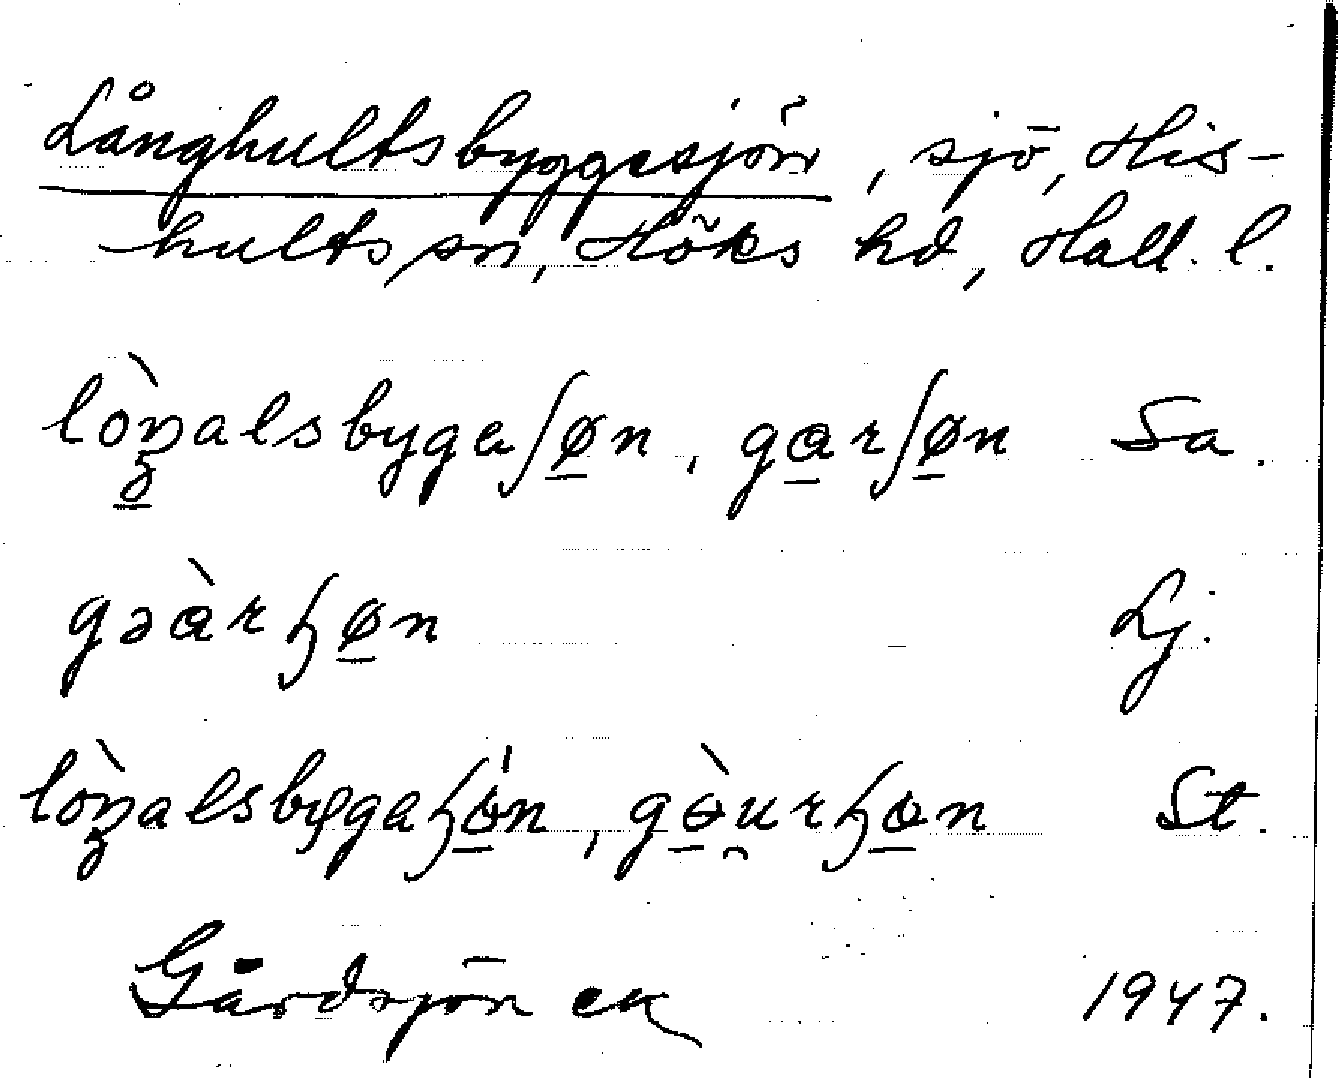 Långhultsbyggesjön, sjö, His-
hults sn, Höks hd, Hall. l.
lòŋalsbygaʃøn, garʃøn Sa.
gəàrɧøn Lj.
lòŋalsbygaɧɵ́n, gɵ̀urɧɵn St.
Gårdsjön ek 1947.